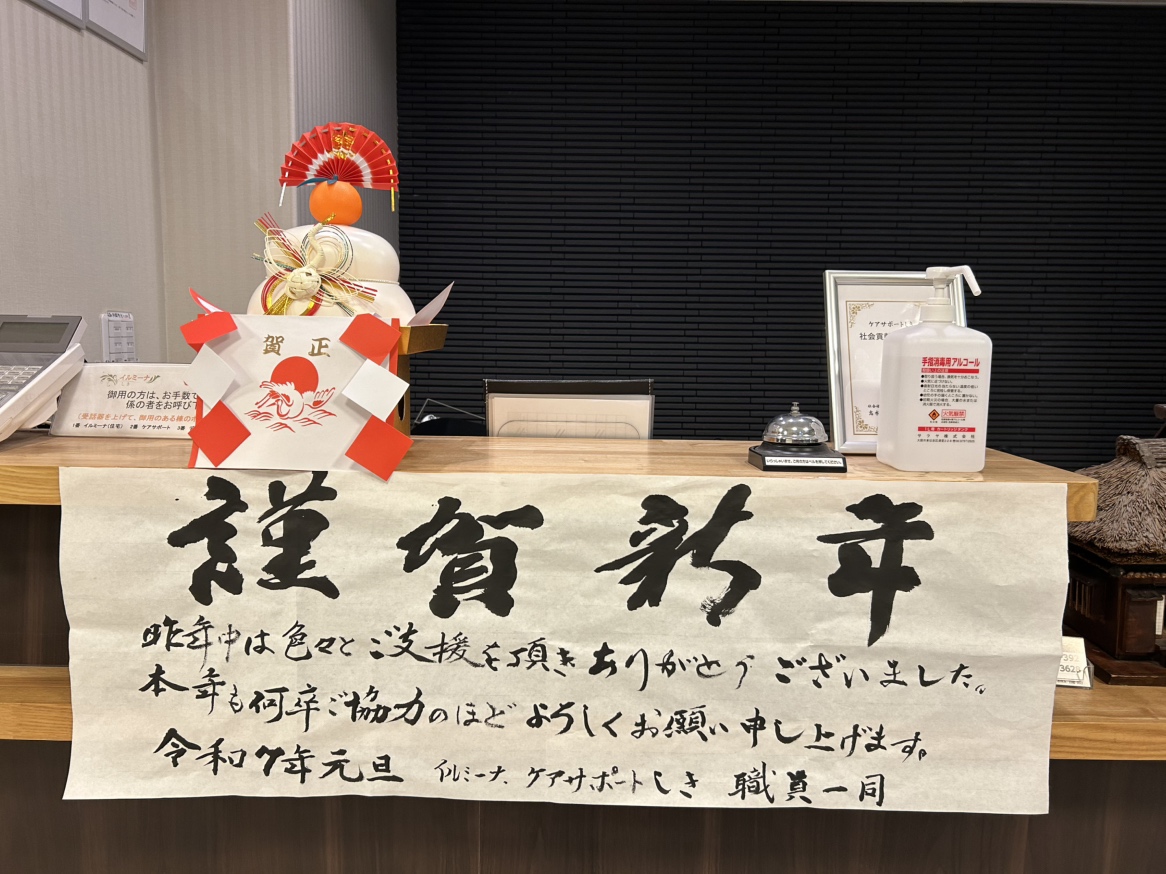 賀正
イルミーナ
御用の方は、お手数で
係の者をお呼び下
1番 イルミーナ(住宅) 2番 ケアサポート 3番
ケアサポートし
社会貢
手指消毒用アルコール
火気厳禁
サラヤ株式会社
謹賀新年
昨年中は色々とご支援を頂きありがとうございました。
本年も何卒ご協力のほどよろしくお願い申し上げます。
令和7年元旦 イルミーナ、ケアサポートしき 職員一同